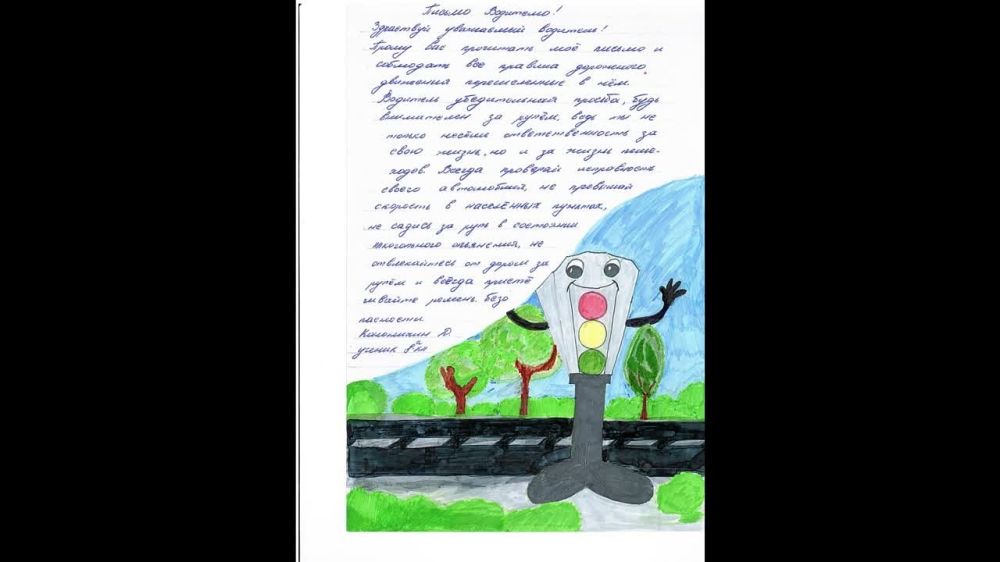 Письмо Водителю!
Здраствуй уважаемый водитель!
Прошу Вас прочитать моё письмо и
соблюдать все правила дорожного
движения перечисленные в нём.
Водитель убедительная просьба, будь
внимателен за рулём, ведь ты не
только несёшь ответственность за
свою жизнь, но и за жизнь пеше-
ходов. Всегда проверяй исправность
своего автомобиля, не превышай
скорость в населённых пунктах,
не садись за руль в состоянии
алкогольного опьянения, не
отвлекайтесь от дороги за
рулём и всегда пристё
гивайте ремень безо
пасности.
Ю.
ученик кл